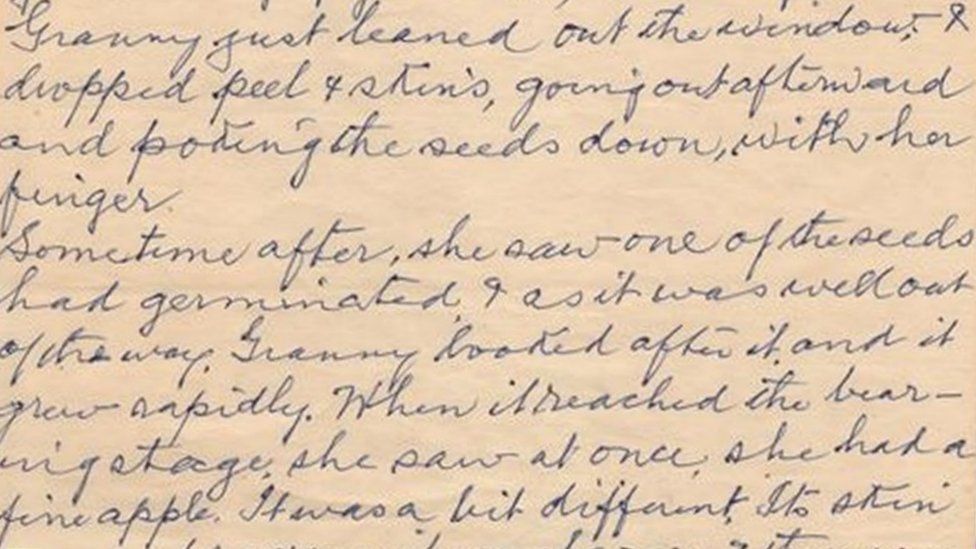 Granny just leaned out the window, &
dropped peel & skins, going out afterward
and poking the seeds down, with her
finger.
Sometime after, she saw one of the seeds
had germinated, & as it was well out
of the way, Granny looked after it, and it
grew rapidly. When it reached the bear-
ing stage, she saw at once, she had a
fine apple. It was a bit different. Its skin